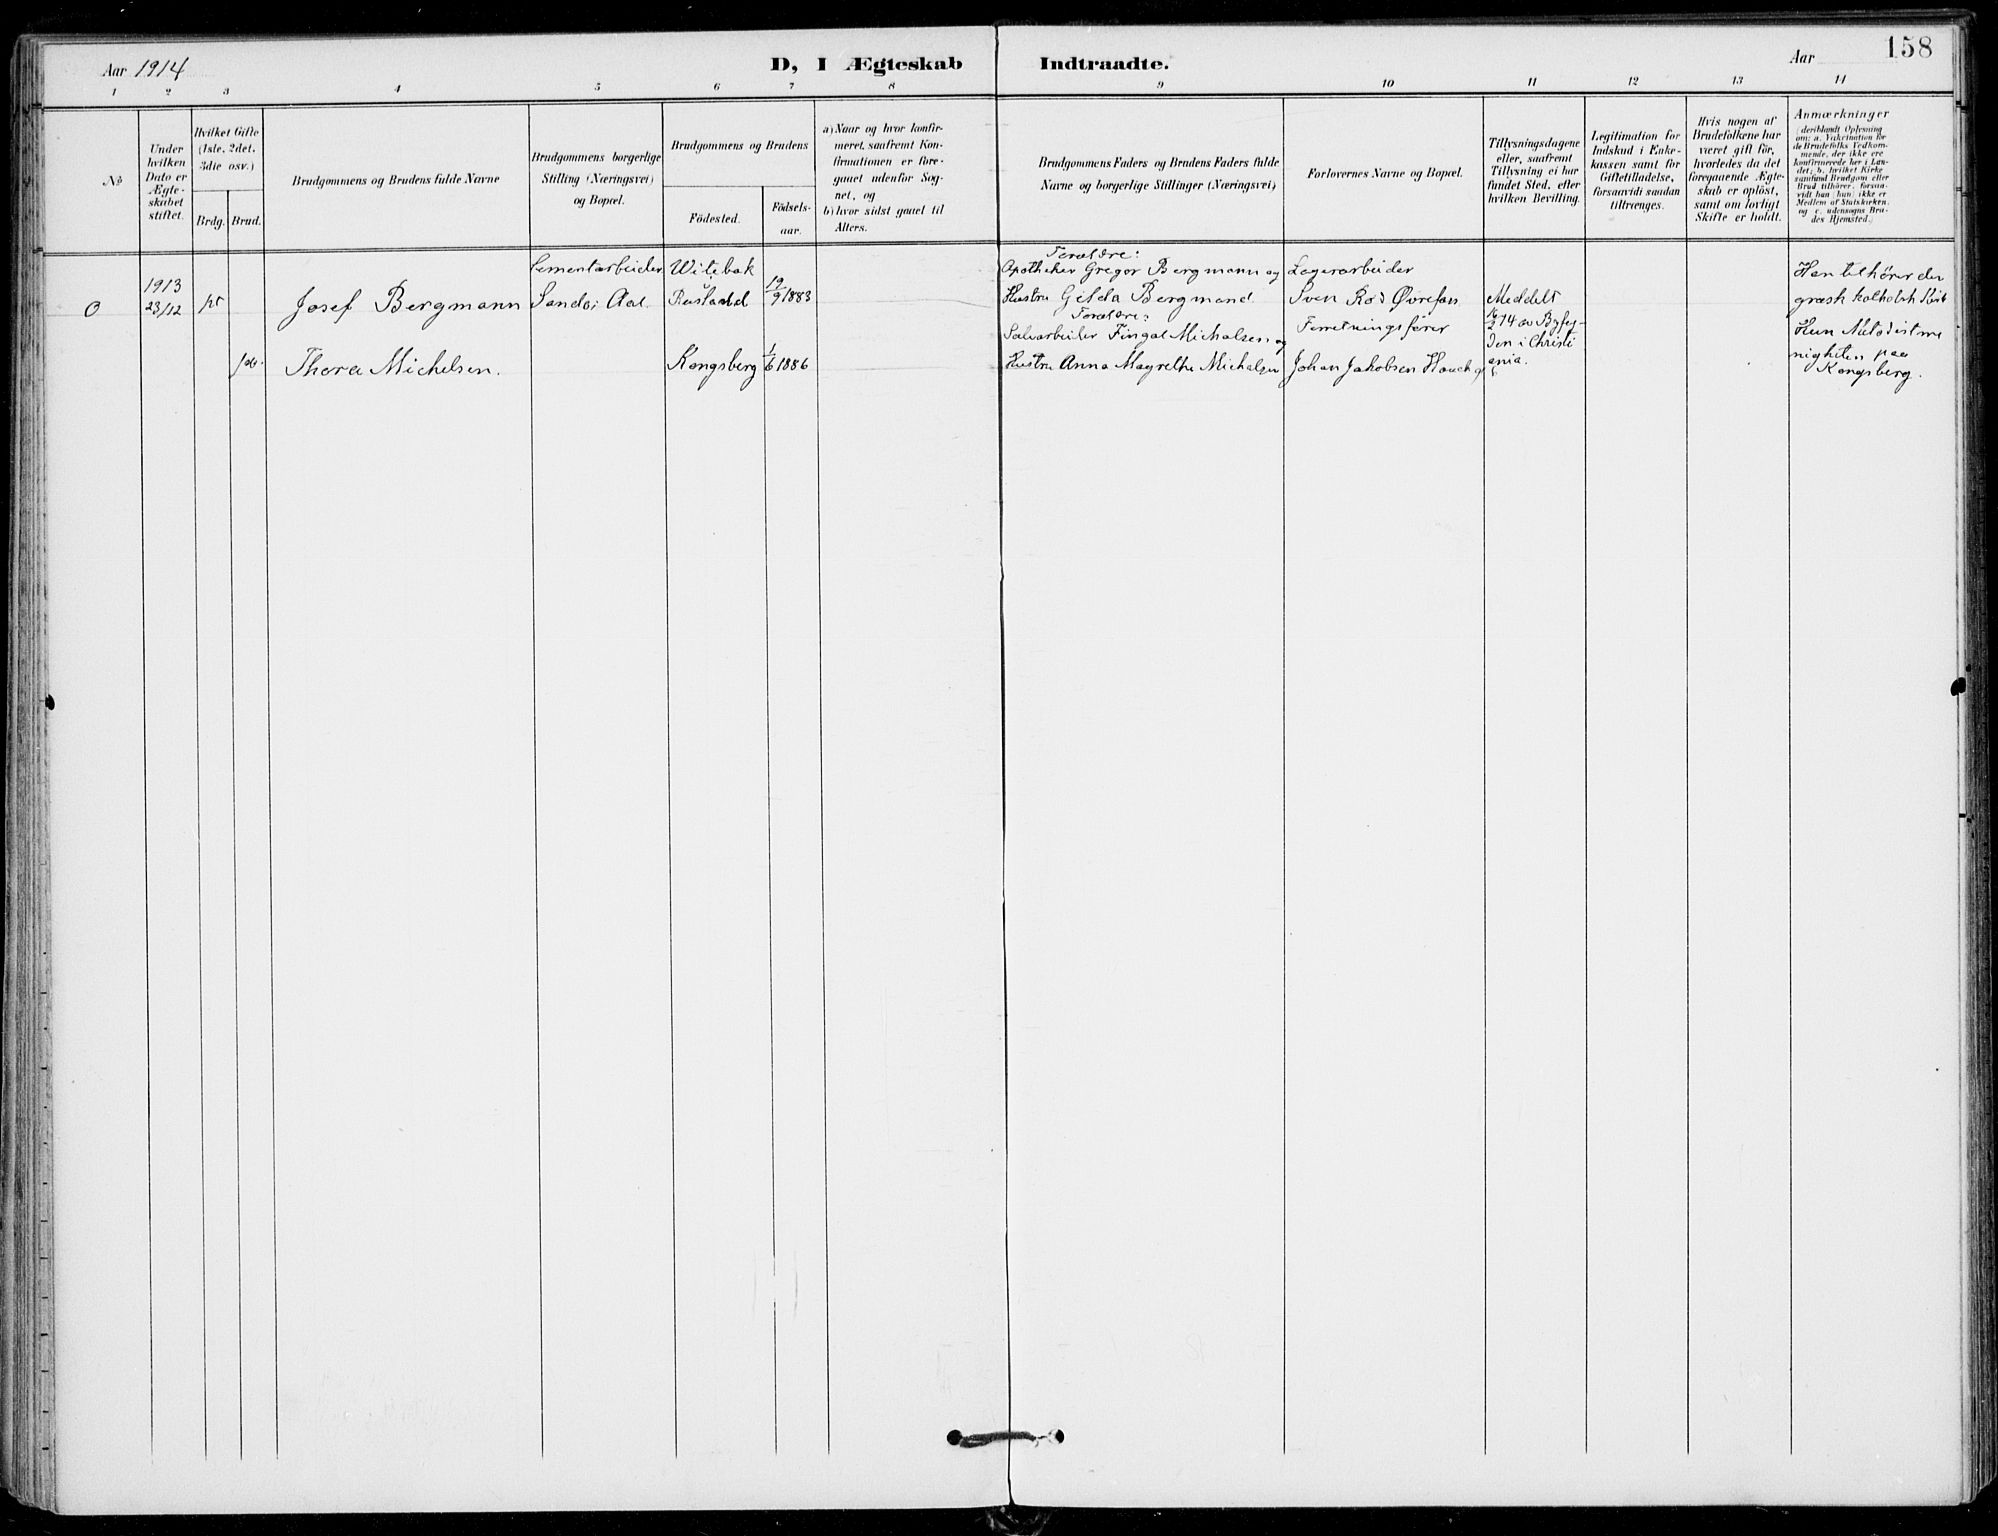 158
Aar 1914
D, I Ægteskab Indtraadte.
Aar
1 2 3 4 5 6 7 8 9 10 11 12 13 14
No
Under
hvilken
Dato er
Ægte-
skabet
stiftet.
Hvilket Gifte
(1ste, 2det,
3die osv.)
Brdg. Brud.
Brudgommens og Brudens fulde Navne
Brudgommens borgerlige
Stilling (Næringsvei)
og Bopæl.
Brudgommens og Brudens
Födested.
Födsels-
aar.
a) Naar og hvor konfir-
meret, saafremt Kon-
firmationen er fore-
gaaet udenfor Sog-
net, og
b) hvor sidst gaaet til
Alters.
Brudgommens Faders og Brudens Faders fulde
Navne og borgerlige Stillinger (Næringsvei)
Forlovernes Navne og Bopæl.
Tillysningsdagene
eller, saafremt
Tillysning ei har
fundet Sted, efter
hvilken Bevilling.
Legitimation for
Indskud i Enke-
kassen samt for
Giftetilladelse,
forsaavidt saadan
tiltrænges.
Hvis nogen af
Brudefolkene har
været gift för,
hvorledes da det
foregaaende Ægte-
skab er oplöst,
samt om lovligt
Skifte er holdt.
Anmærkninger
(deriblandt Oplysning
om: a. Vakcination for
de Brudefolks Vedkom-
mende, der ikke ere
konfirmerede her i Lan-
det; b. hvilket Kirke
samfund Brudgom eller
Brud tilhörer, forsaa-
vidt han (hun) ikke er
Medlem af Statskirken,
og c. udensogns Bru-
des Hjemsted.)
0
1913
23/12
Josef Bergmann
Cementarbeider
Sando i Aal
Witebsk
Rusland
19/9 1883
Forældre:
Apotheker Gregor Bergmann og
Hustru Gilda Bergmand
Lagerarbeider
Sven Rød Øvrefos
Meddelt
16/2 14 av Byfog
den i Christi
ania.
Han tilhører den
græsk katholsk Kirk
Thora Michelsen.
Kongsberg
1/6 1886
Forældre:
Sølvarbeider Fingal Michalsen og
Hustru Anna Magrethe Michalsen
Forretningsfører
Johan Jakobsen
Hun Metodistme
nigheten paa
Kongsberg.